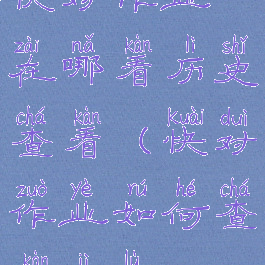 快对作业
zài nǎ kàn lì shǐ
在哪看历史
chá kàn kuài duì
查看(快对
zuò yè rú hé chá
作业如何查
kàn jì lù